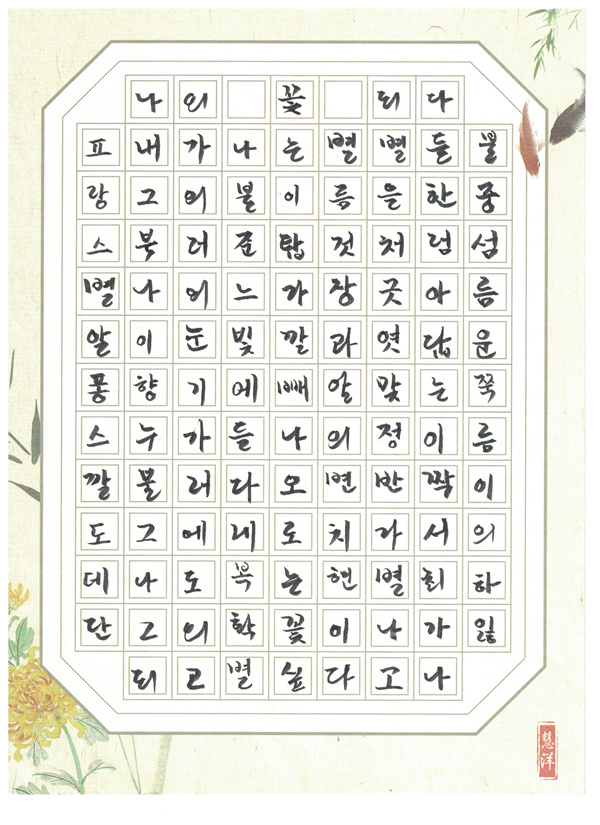 나 의 꽃 되 다
프 내 가 나 는 별 별 들 불
랑 그 의 불 이 름 을 한 중
스 북 더 준 탑 것 처 럼 섬
별 나 의 느 가 장 긋 아 름
알 이 눈 빛 깔 과 엿 답 운
퐁 향 기 에 빼 알 맞 는 쭉
스 누 가 들 나 의 정 이 름
깔 불 러 다 오 면 반 짝 이
도 그 에 게 로 치 가 서 의
데 나 도 는 현 별 최 하
단 그 의 학 꽃 이 나 가 잃
되 고 별 싶 다 고 나
慧洋